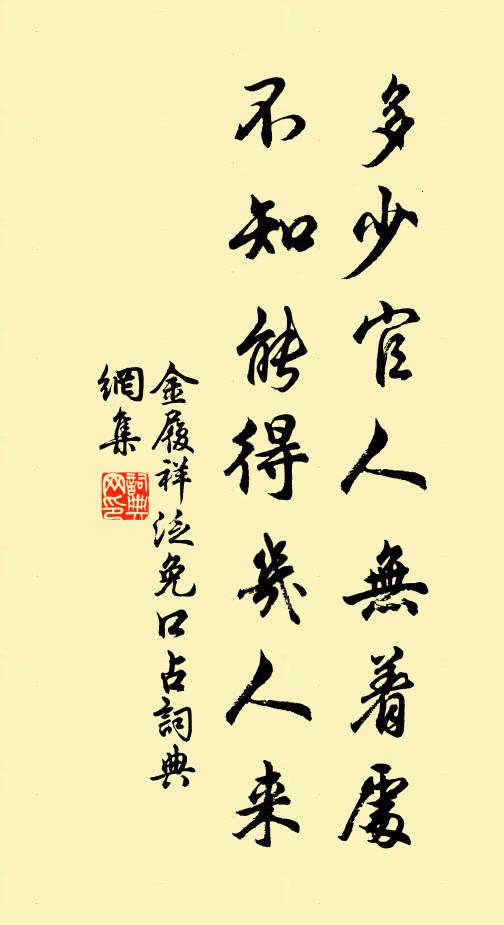 多少官人無着處
不知能得幾人来
金履祥泛免口占詞典
網集
詞典
网印